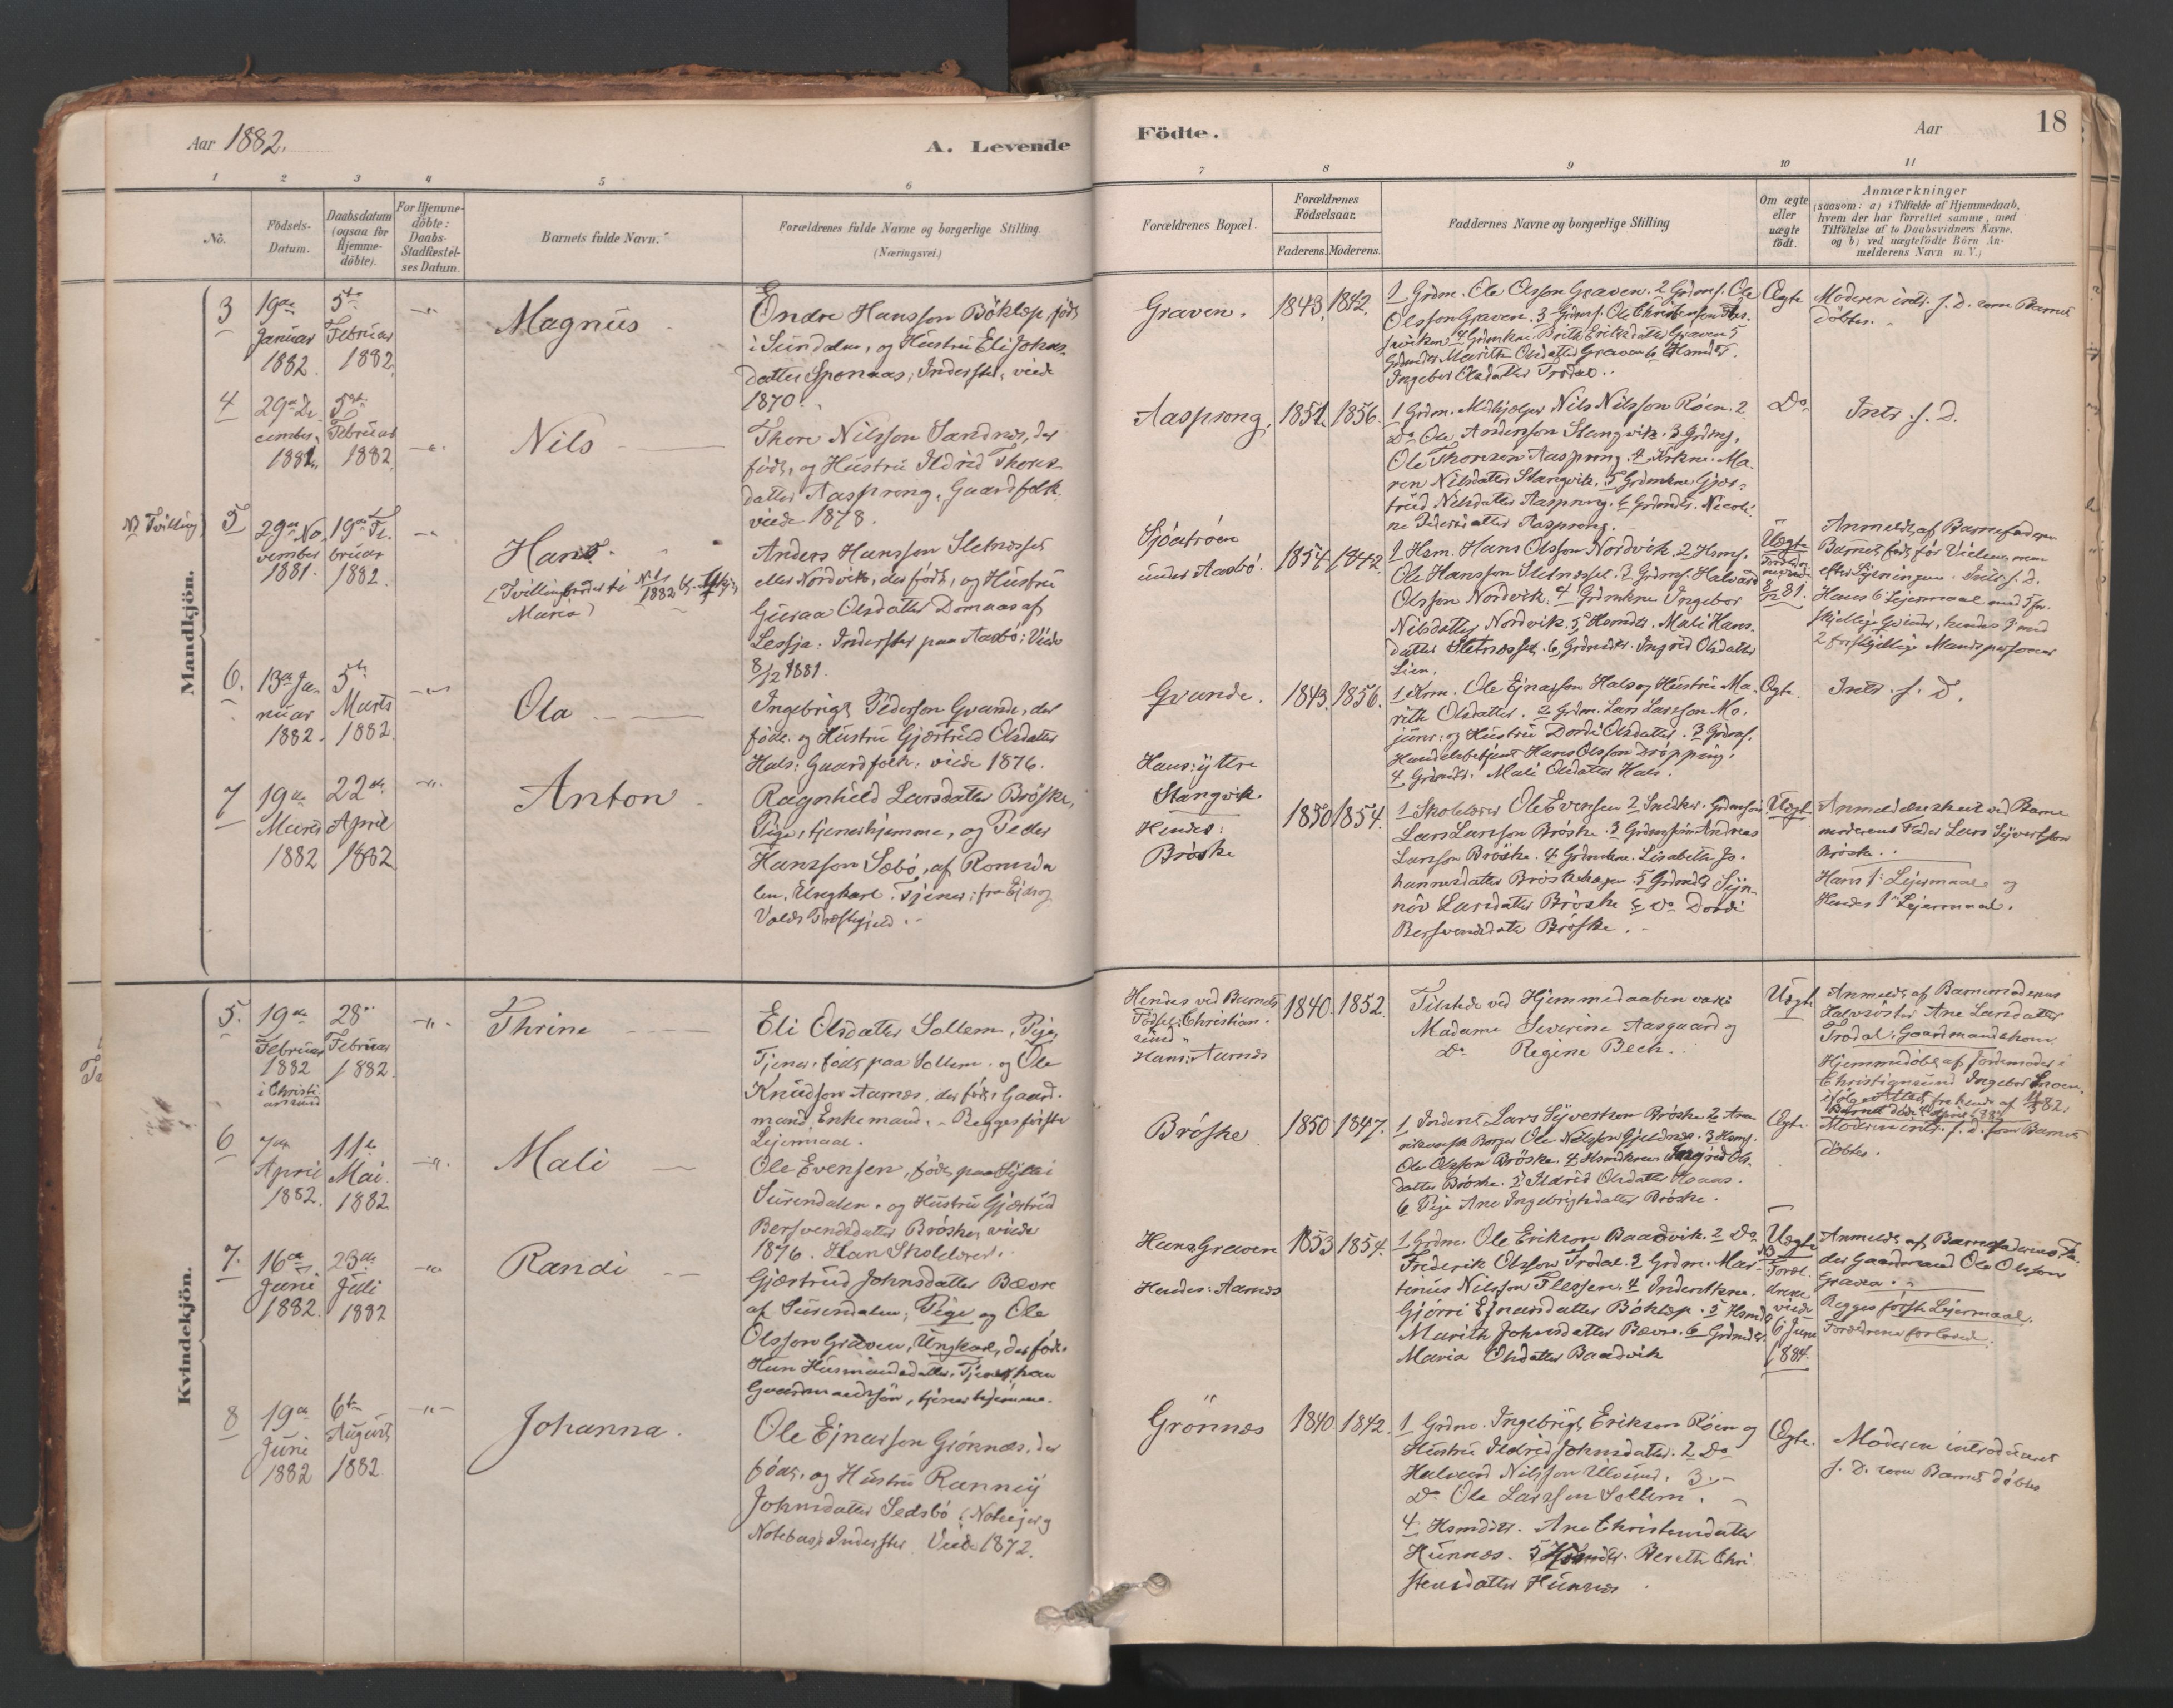 Aar 1882.
A. Levende
Födte.
Aar
18
1 2 3 4 5 6 7 8 9 10 11
No.
Födsels-
Datum.
Daabsdatum
(ogsaa for
Hjemme-
döbte).
For Hjemme-
döbte:
Daabs-
Stadfæstel-
ses Datum.
Barnets fulde Navn.
Forældrenes fulde Navne og borgerlige Stilling.
(Næringsvei.)
Forældrenes Bopæl.
Forældrenes
Födselsaar.
Faderens. Moderens.
Faddernes Navne og borgerlige Stilling
Om ægte
eller
uægte
födt.
Anmærkninger
(saasom: a) i Tilfælde af Hjemmedaab,
hvem der har forrettet samme, med
Tilföielse af to Daabsvidners Navne.
og b) ved uægtefödte Börn An-
melderens Navn m. V.)
Mandkjön.
3
19de
Januar
1882.
5te
Februar
1882.
Magnus
Endre Hansson Böklep, föds
i Surndalen, og Hustru Eli Johns-
datter Sponaas; Inderster, viede
1870.
Graven.
1843. 1842.
1 Grdm. Ole Olsson Graven. 2 Grdms. Ole
Olsson Graven. 3 Grdms. Ole Christenson
4 Grdmkne Brith Eriksdatter Graven 5
Grdmdtr Marith Olsdatter Graven 6 Hsmdtr.
Ingebor Olsdatter Trodal..
Ægte
Moderen intr. s. D. som Barnet
döbtes.
4
29de De
cember
1881.
5te
Februar
1882.
Nils
Thore Nilsson Sandnes, der
föds, og Hustru Ildrid Thores-
datter Aasprong, Gaardfolk.
viede 1878.
Aasprong.
1851. 1856.
1 Grdm. Medhjælper Nils Nilsson Röen. 2
Do Ole Andersson Stangvik. 3 Grdms.
Ole Thoresen Aasprong. 4 Krkne. Ma-
ren Nilsdatter Stangvik. 5 Grdmkne Gjær-
trud Nilsdatter Aasprong. 6 Grdmdtr. Nicoli-
ne Pedersdatter Aasprong.
Do
Intr. s. D.
NB Tvilling
5
29de No
vember
1881.
19de Fe-
bruar
1882.
Hans.
(Tvillingbroder til
Maria)
Anders Hansson Sletnesset
eller Nordvik, der föds, og Hustru
Guraa Olsdatter Domaas af
Lessja: Inderster paa Aasbö: Viede
8/12 1881.
Sjöatröen
under Aasbö.
1854. 1842.
1 Hsm. Hans Olsson Nordvik. 2 Hsms.
Ole Hansson Sletnesset. 3 Grdms. Halvard
Olsson Nordvik. 4 Grdmkne Ingebor
Nilsdatter Nordvik. 5 Hsmdtr. Mali Hans-
datter Sletnesset. 6 Grdmdtr. Ingrid Olsdatter
Lien.
Uægte
8/12 81.
Anmeldt af Barnefaderen
Barnet föds för Vielsen, men
efter Lysningen. Intr. s. D.
Hans 6 Leiermaal med 5 for-
skjellige Qvinder, hendes 3 med
2 forskjellige Mandspersoner
6.
13de Ja-
nuar
1882.
5te
Marts
1882.
Ola
Ingebrigt Pederson Gvande, der
föds, og Hustru Gjærtrud Olsdatter
Hals: Gaardfolk: viede 1876.
Gvande.
1843. 1856.
1 Krm. Ole Ejnarson Hals og Hustru Ma-
rith Olsdatter. 2 Grdm. Lars Larsson Mo,
og Hustru Dordi Olsdatter. 3 Grdms.
Handelsbetjent Hans Olsson Dröpping:
4 Grdmdtr. Mali Olsdatter Hals.
Ægte.
Intr. s. D.
7
19de
Marts
1882
22de
April
1882
Anton
Ragnhild Larsdatter Bröske,
Pige, tjener hjemme, og Peder
Hansson Sæbö, af Romsda
len, Ungkarl. Tjener: fra Eids og
Volds Præstegjeld.
Hans: ytre
Stangvik.
Hendes:
Bröske
1850 1854.
1 Skolelærer Ole Evensen 2 Snedker. Grdmsön
Lars Larsson Bröske. 3 Grdmsön Andreas
Larsson Bröske. 4 Grdmkne. Lisabeth Jo-
hannesdatter Bröskehagen. 5 Grdmdtr Syn-
növ Larsdatter Bröske 6 Do Dordi
Bersvendsdatter Bröske.
Uægte
Anmeldelse skeet ved Barne
moderens Fader Lars Syvertson
Bröske..
Hans 1ste Leiermaal og
Hendes 1ste Leiermaal.
Kvindekjön.
5.
19de
Februar
1882
i Christi
ansund
28de
Februar
1882.
Thrine
Eli Olsdatter Sollem, Pige,
Tjener, föds paa Sollem. og Ole
Knudson Aarnes, der föds, Gaard-
mand, Enkemand. Begges förste
Leiermaal.
Hendes ved Barnets
Födsel: Christian-
sund"
Hans: Aarnes
1840. 1852.
Tilstede ved Hjemmedaaben vare
Madame Severine Aasgaard og
Do Regine Bech.
Uægte
Anmeldt af Barnemoderens
Halvsöster Ane Larsdatter
Trodal, Gaardmandskone.
Hjemmedöbt af Jordemoder i
Christiansund Ingebor
ifölge Attest fra hende af 11/3 82.
Barnet döde 4de April 1882
6
7de
April
1882.
11te
Mai
1882
Mali
Ole Evensen, föds paa Sylte i
Surendalen. og Hustru Gjærtrud
Bersvendsdatter Bröske, viede
1876. Han Skolelærer.
Bröske
1850 1847.
1 Inderst Lars Syvertson Bröske 2 Ame
rikansk Borger Ole Nilsson Gjeldnes. 3 Hsms.
Ole Olsson Bröske. 4 Hsmdkne. Ingrid Ols-
datter Bröske. 5 Ildrid Olsdatter
6 Pige Ane Ingebrigtsdatter Bröske.
Ægte.
Moderen intr. s. D. som Barnet
döbtes.
7.
16de
Juni
1882.
23de
Juli
1882
Randi
Gjærtrud Johnsdatter Bævre
af Surendalen, Pige og Ole
Olsson Graven, Ungkarl, der föds.
Hun Husmandsdatter, Tjener, han
Gaardmandssön, tjener hjemme.
Hans Graven
Hendes: Aarnes
1853 1854.
1 Grdm. Ole Erikson Baardvik. 2 Do
Frederik Olsson Trodal. 3 Grdm. Mar-
tinus Nilsson Flessen. 4 Inderstkne.
Gjörri Ejnarsdatter Böklep. 5 Hsmdtr
Marith Johnsdatter Bævre. 6 Grdmdtr.
Maria Olsdatter Baardvik
Uægte
NB
Foræl-
drene
viede
6 Juni
1884.
Anmeldt af Barnefaderens Fa-
der Gaardmand Ole Olsson
Graven.
Begges förste Leiermaal.
Forældrene forlovede.
8
19de
Juni
1882
6te
August
1882
Johanna.
Ole Ejnarson Grönnes, der
föds, og Hustru Ranney
Johnsdatter Sedsbö. (Notejer og
Notebas). Inderster Viede 1872.
Grönnes
1840. 1842.
1 Grdm. Ingebrigt Erikson Röen og
Hustru Ildrid Johnsdatter. 2 Do
Halvard Nilsson Ulvund. 3
Do Ole Larsson Sollem.
4 Hsmdtr. Ane Christensdatter
Hunnes. 5 Hsmdtr. Bereth Chri
stensdatter Hunnes
Ægte.
Moderen introduceret
s. D. som Barnet döbtes